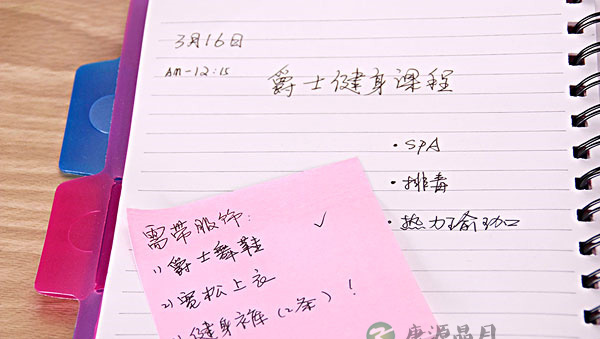 3月16日
AM-12:15
爵士健身课程
·SPA
·排毒
·热力瑜珈
需带服饰:
1)爵士舞鞋
2)宽松上衣
健身裤(2条)!
康源晶月